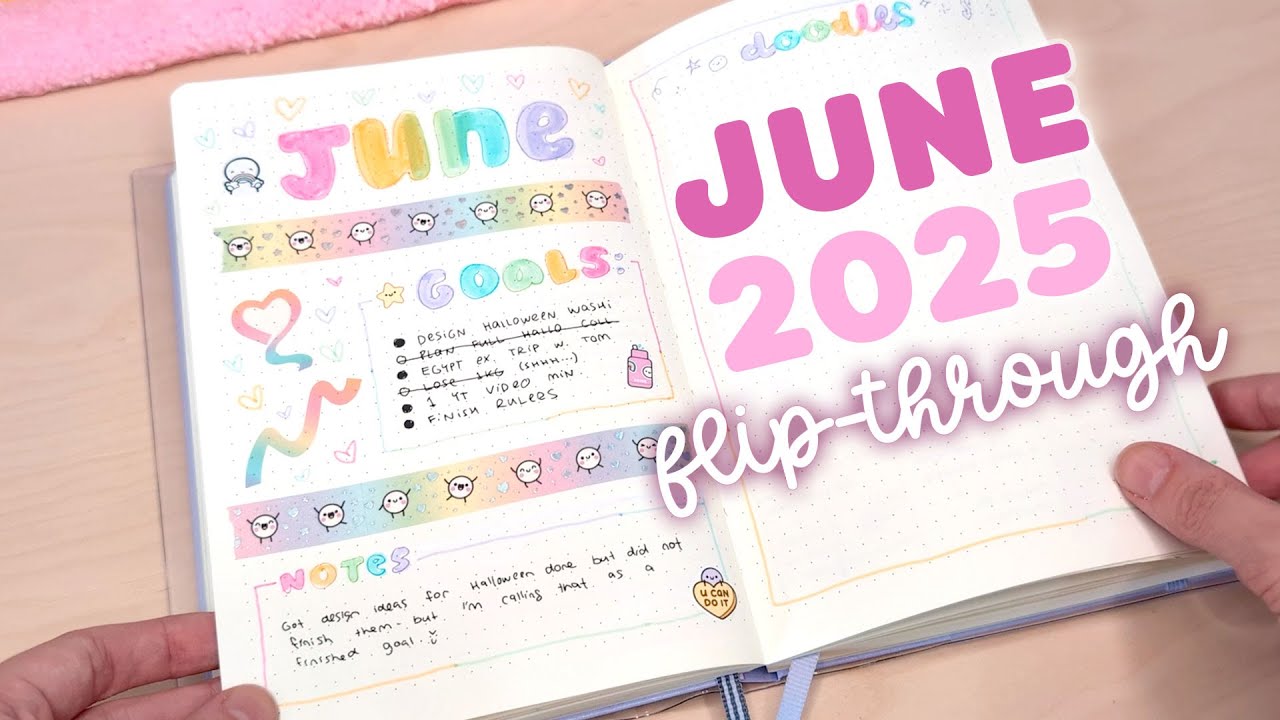 June
GOALS
DESIGN HALLOWEEN WASHI
PLAN FULL HALLO COLL
EGYPT EX. TRIP W. TOM
LOSE 1KG (SHHH...)
1 YT VIDEO MIN.
FINISH RULEES
NOTES
Got design ideas for Halloween done but did not
finish them - but I'm calling that as a
finished goal
U CAN
DO IT
doodles
JUNE
2025
flip-through